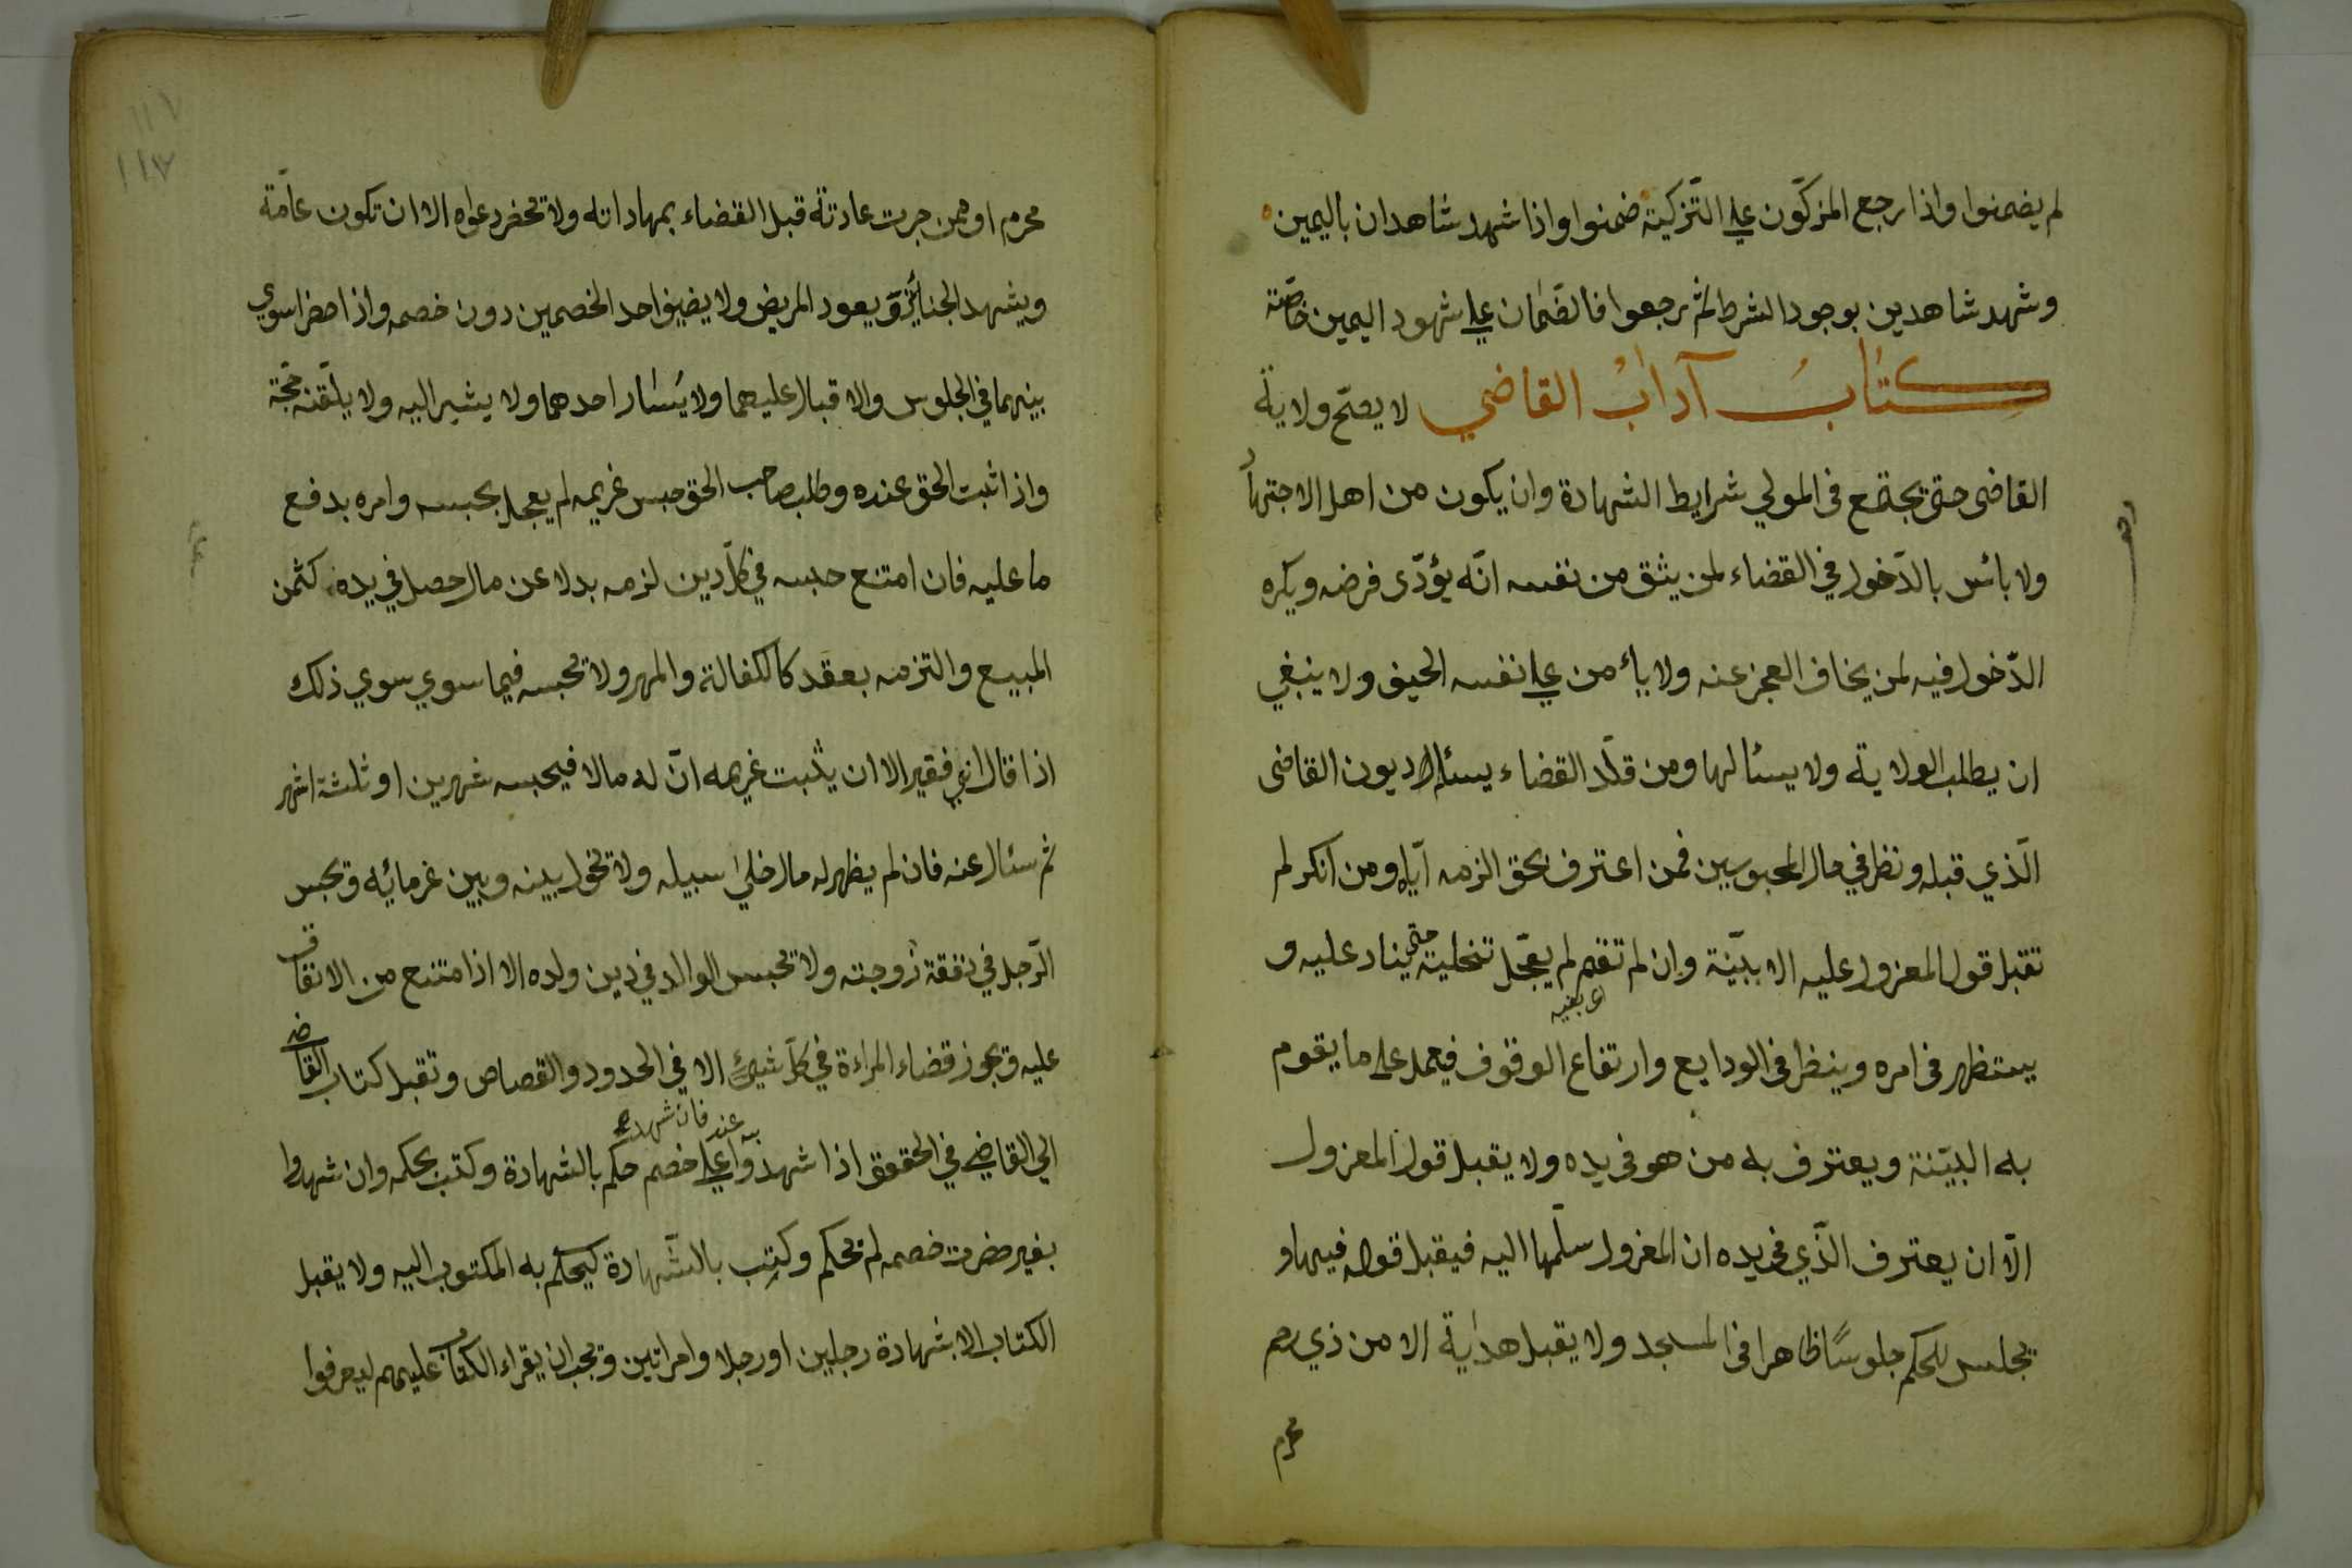 لم يضمنوا واذا رجع المزكّون علي التّزكية ضمنوا واذا شهد شاهدان باليمين
وشهد شاهدين بوجود الشرط ثم رجعوا فالضّمان علي شهود اليمين خاصّة
كتابُ آدابُ القاضي لا يصحّ ولاية
القاضى حتى يجتمع فى المولي شرايط الشهادة وان يكون من اهل الاجتهاد
ولا بائس بالدّخول في القضاء لمن يثق من نفسه انّه يؤدّى فرضه ويكره
الدّخول فيه لمن يخاف العجز عنه ولا يأمن علي نفسه الحيف ولا ينبغي
ان يطلب الولاية ولا يسئالها ومن قلّد القضاء يسئل ديون القاضى
الّذي قبله ونظر في حال المحبوسين فمن اعترف بحق الزمه آياه ومن انكر لم
تقبل قول المعزول عليه الا ببيّنة وان لم تقم لم يعجّل تخلية حتى يناد عليه و
اى بقيه
يستظهر فى امره وينظر فى الودايع وارتفاع الوقوف فيعمل على ما يقوم
به البيّنة ويعترف به من هو فى يده ولا يقبل قول المعزول
الّا ان يعترف الذّي فى يده ان المعزول سلّمها اليه فيقبل قوله فيها و
يجلس للحكم جلوسًا ظاهرا فى المسجد ولا يقبل هداية الا من ذي رحم
محرم
١١٧
١١٧
محرم او ممن جرت عادته قبل القضاء بمهاداته ولا تحضر دعواه الا ان تكون عامّة
ويشهد الجنائز ويعود المريض ولا يضيف احد الخصمين دون خصمه واذا حضرا سوي
بينهما في الجلوس والاقبال عليهما ولا يُسَارّ احدهما ولا يشير اليه ولا يلّقنه حجّة
واذا ثبت الحق عنده وطلب صاحب الحق حبس غريمه لم يعجل بحبسه وامره بدفع
ما عليه فان امتنع حبسه في كلّ دين لزمه بدلا عن مال حصل في يده كثمن
المبيع والتزمه بعقد كالكفالة والمهر ولا تحبسه فيما سوي سوي ذلك
اذا قال اني فقير الا ان يثبت غريمه انّ له مالا فيحبسه شهرين او ثلثة اشهر
ثم سئال عنه فان لم يظهر له مال خليٰ سبيله ولا تحول بينه وبين غرمائه وتحبس
الرّجل في نفقة زوجته ولا تحبس الوالد في دين ولده الا اذا متنع من الانفاق
عليه وتجوز قضاء المراءة في كلّ شيئ الا في الحدود والقصاص وتقبل كتاب القاضي
الي القاضي في الحقوق اذا شهد به عنده فان شهدوا علي خصم حكم بالشهادة وكتب بحكمه وان شهدوا
بغير حضرت خصمه لم تحكم وكتِب بالشّهادة ليحكم به المكتوب اليه ولا يقبل
الكتاب الا بشهادة رجلين او رجلا وامراتين وتجب ان يقراء الكتاب عليهم ليعرفوا